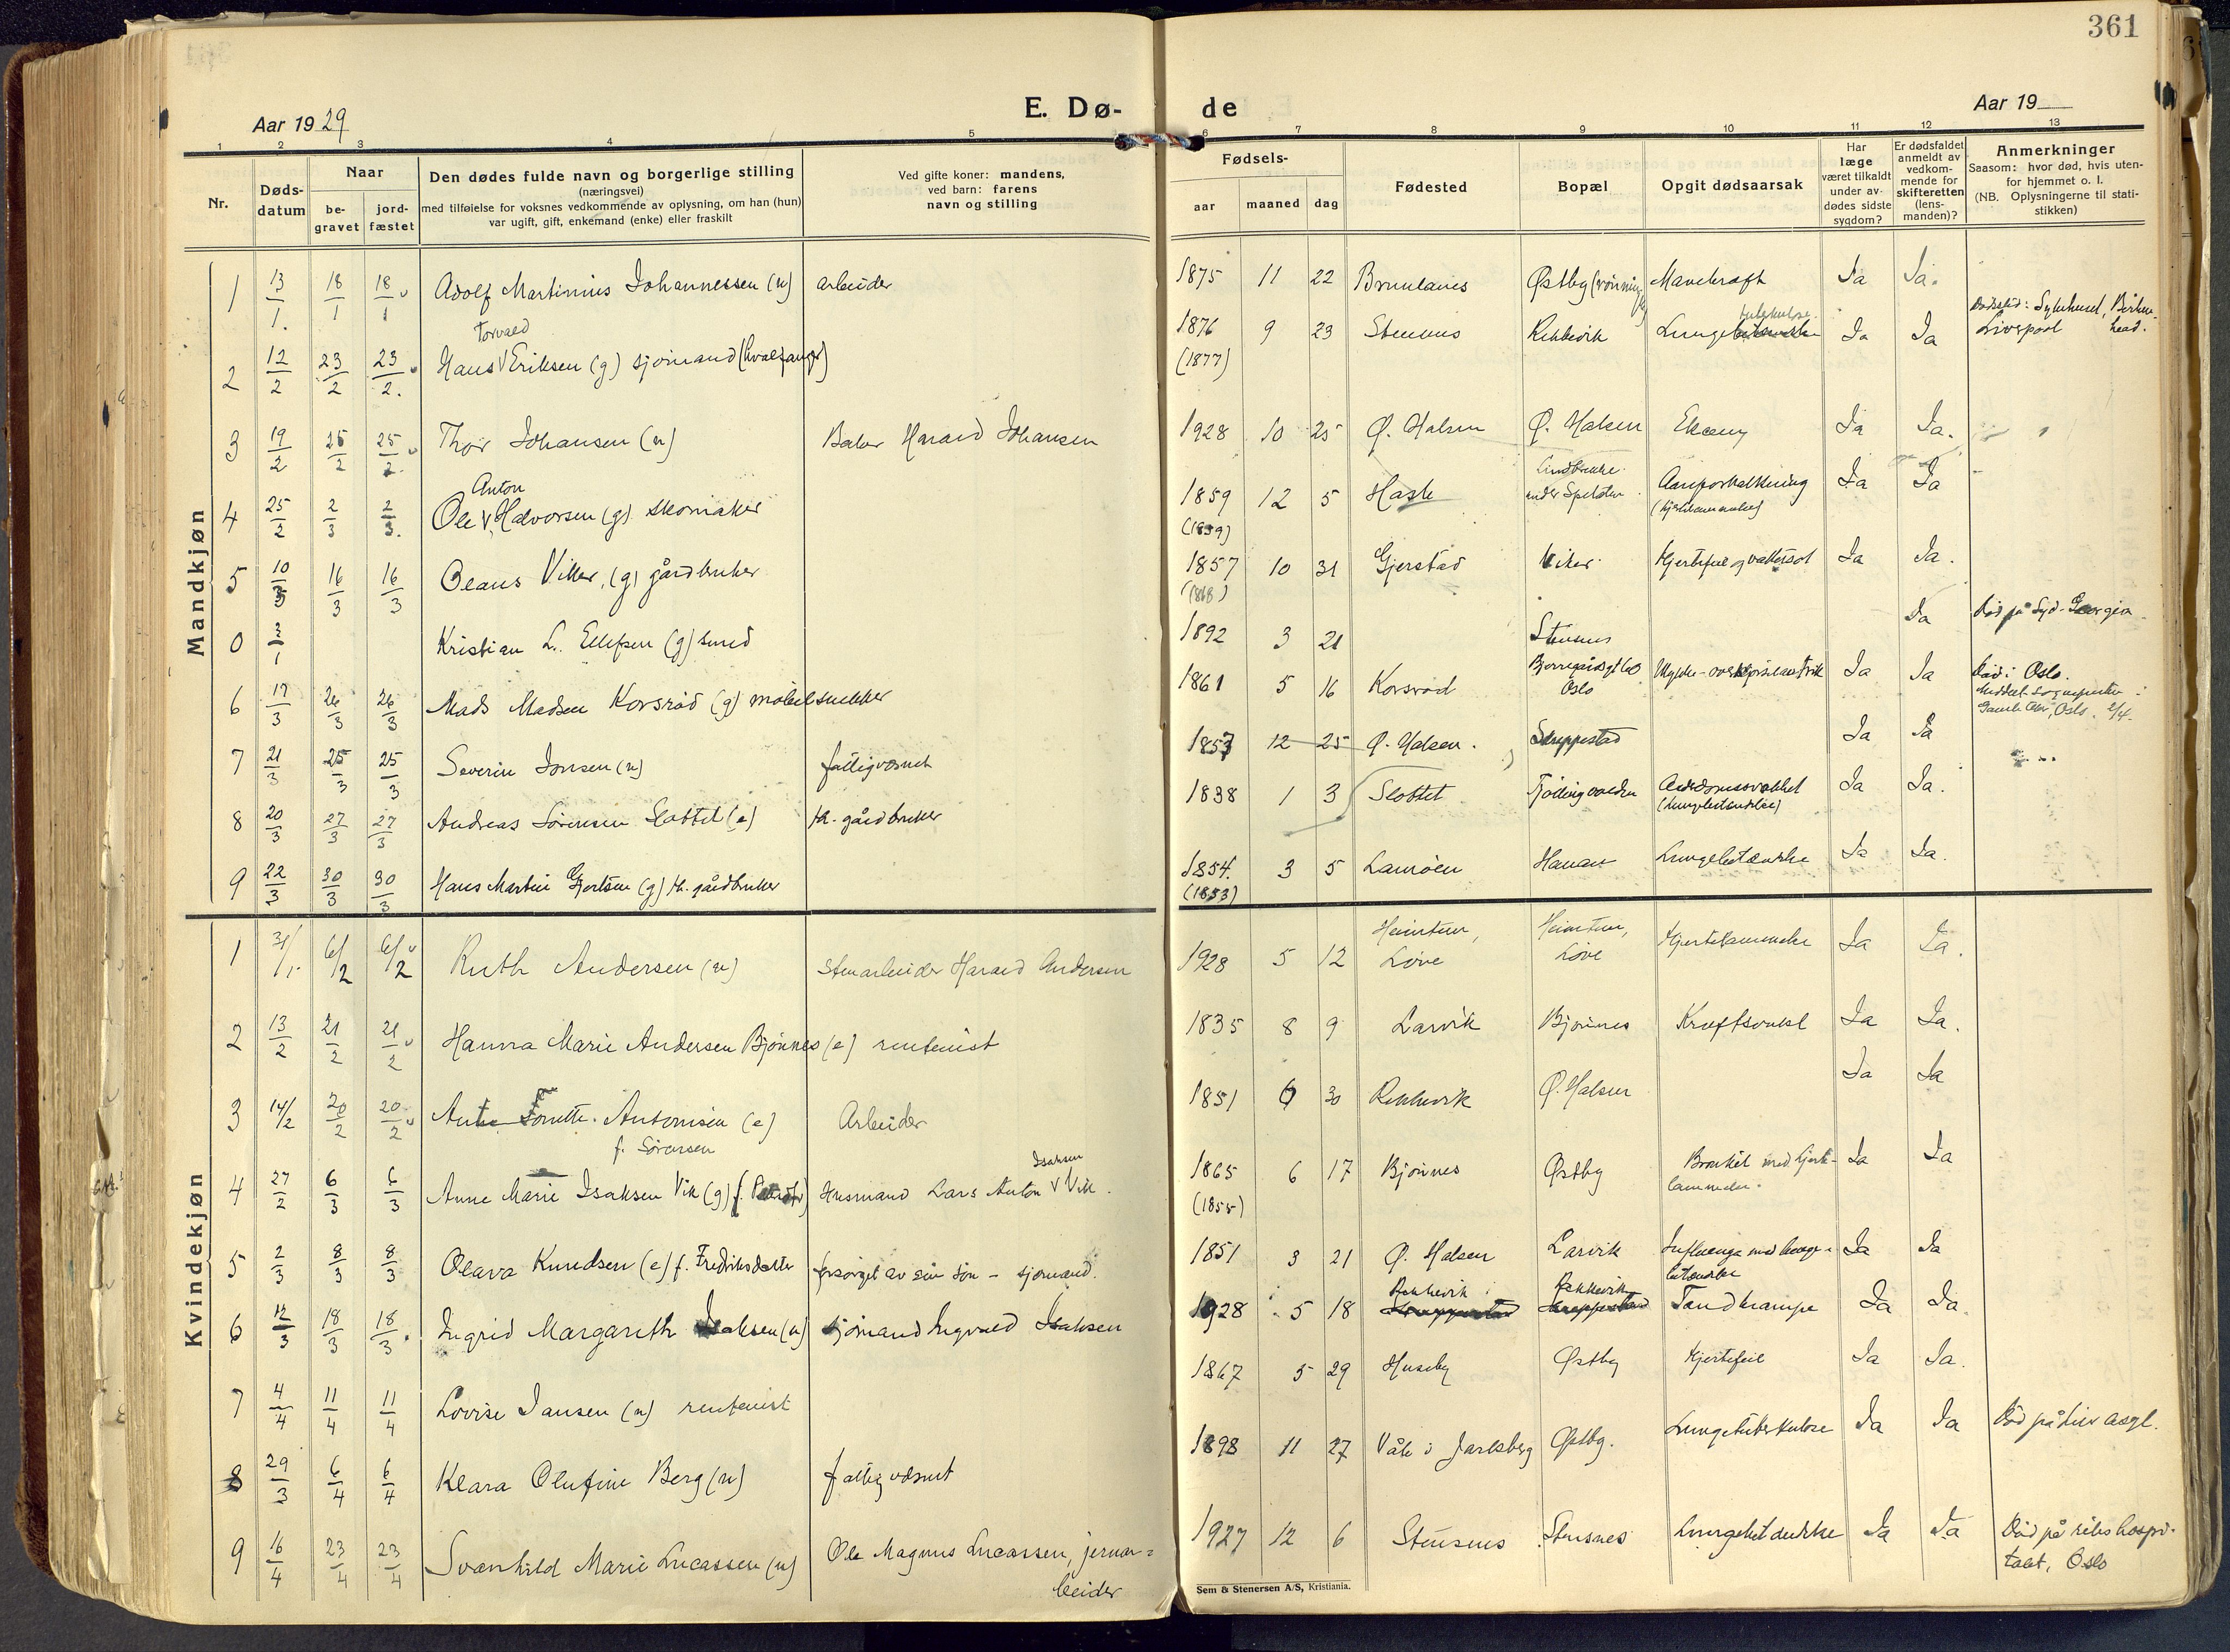 361
Aar 1929
E. Dø-
de
Aar 19
1 2 3 4 5
6 7 8 9 10 11 12 13
Nr.
Døds-
datum
Naar
be-
gravet
jord-
fæstet
Den dødes fulde navn og borgerlige stilling
(næringsvei)
med tilføielse for voksnes vedkommende av oplysning, om han (hun)
var ugift, gift, enkemand (enke) eller fraskilt
Ved gifte koner: mandens,
ved barn: farens
navn og stilling
Fødsels-
aar maaned dag
Fødested
Bopæl
Opgit dødsaarsak
Har
læge
været tilkaldt
under av-
dødes sidste
sygdom?
Er dødsfaldet
anmeldt av
vedkom-
mende for
skifteretten
(lens-
manden)?
Anmerkninger
Saasom: hvor død, hvis uten-
for hjemmet o. l.
(NB. Oplysningerne til stati-
stikken)
Mandkjøn
1 13/1. 18/1 18/1 Adolf Martinius Johannessen (u) arbeider 1875 11 22 Brunlanes Østby Mavekræft Ja Ja.
Torvald
2 12/2 23/2 23/2. Hans V Eriksen (g) sjömand (hvalfanger) 1876 9 23 Stensnes Rekkevik Lunge tuberkulose Ja Ja
(1877)
Dödssted: Sykehuset, Birken-
Liverpool head.
3 19/2 25/2 25/2. Thor Johansen (u) Baker Harald Johansen 1928 10 25 Ø. Halsen Ø. Halsen Ekcem Ja Ja.
Anton
4 25/2 2/3 2/3. Ole V Halvorsen (g) skomaker 1859 12 5 Hasle Lindbrekke
under Aareforkalkning Ja Ja
(1859) (hjertelammelse)
5 10/3 16/3 16/3 Olaus Viker, (g) gårdbruker 1857 10 31 Gjerstad Viker Hjertefeil og vattersot Ja Ja.
0 3/1 Kristian L. Ellefsen (g) smed 1892 3 21 Stensnes Ja Död på Syd-Georgia
6 17/3 26/3 26/3 Mads Madsen Korsröd (g) möbelsnekker 1861 5 16 Korsröd
Oslo Ja Ja Död i Oslo.
7 21/3 25/3 25/3 Severin Jonsen (u) fattigvæsnet 1857 12 25 Ø. Halsen. Skreppestad Ja Ja
8 20/3 27/3 27/3 Andreas Sörensen Slottet (e) fh. gårdbruker 1838 1 3 Slottet Tjöllingvolden Alderdomssvakhet Ja Ja.
(lungebetændelse)
9 22/3 30/3 30/3 Hans Martin Gjertsen (g) fh. gårdbruker 1854. 3 5 Lamöen Hanan Lungebetændelse Ja Ja.
(1853)
Kvindekjøn
1 31/1. 6/2 6/2 Ruth Andersen (u) Stenarbeider Harald Andersen 1928 5 12 Heimtun, Löve Heimtun, Löve Hjertelammelse Ja Ja.
2 13/2 21/2 21/2 Hanna Marie Andersen Bjönnes (e) rentenist 1835 8 9 Larvik Bjönnes Kræftsvulst Ja Ja.
3 14/2 20/2 20/2 Antonsen (e) Arbeider 1851 30 Rekkevik Ø. Halsen Ja Ja
f. Sörensen
4 27/2 6/3 6/3 Anne Marie Isaksen Vik (g) Husmand Lars Anton V Vik. 1865 6 17 Bjönnes Östby Bronkit med hjerte-
lammelse. Ja Ja
Isaksen
(1855)
5 2/3 8/3 8/3 Olava Knudsen (e) f. Fredriksdatter forsörget av sin sön - sjömand. 1851 3 21 Ø. Halsen Larvik Influenza med lunge-
betændelse Ja Ja
6 12/3 18/3 18/3. Ingrid Margareth Isaksen (u) sjömand Ingvald Isaksen 1928 5 18 Rekkevik Rekkevik Tandkrampe Ja Ja.
7 4/4 11/4 11/4 Lovise Jansen (u) rentenist 1867 5 29 Huseby Östby Hjertefeil Ja Ja.
8 29/3 6/4 6/4 Klara Olufine Berg (u) fattigvæsnet 1898 11 27 Våle i Jarlsberg Östby. Lungetuberkulose Ja Ja
9 16/4 23/4 23/4 Svanhild Marie Lucassen (u) Ole Magnus Lucassen, jernar-
beider 1927 12 6 Stensnes Stensnes Lungebetændelse Ja Ja Död på rikshospi-
talet, Oslo
Sem & Stenersen A/S, Kristiania.